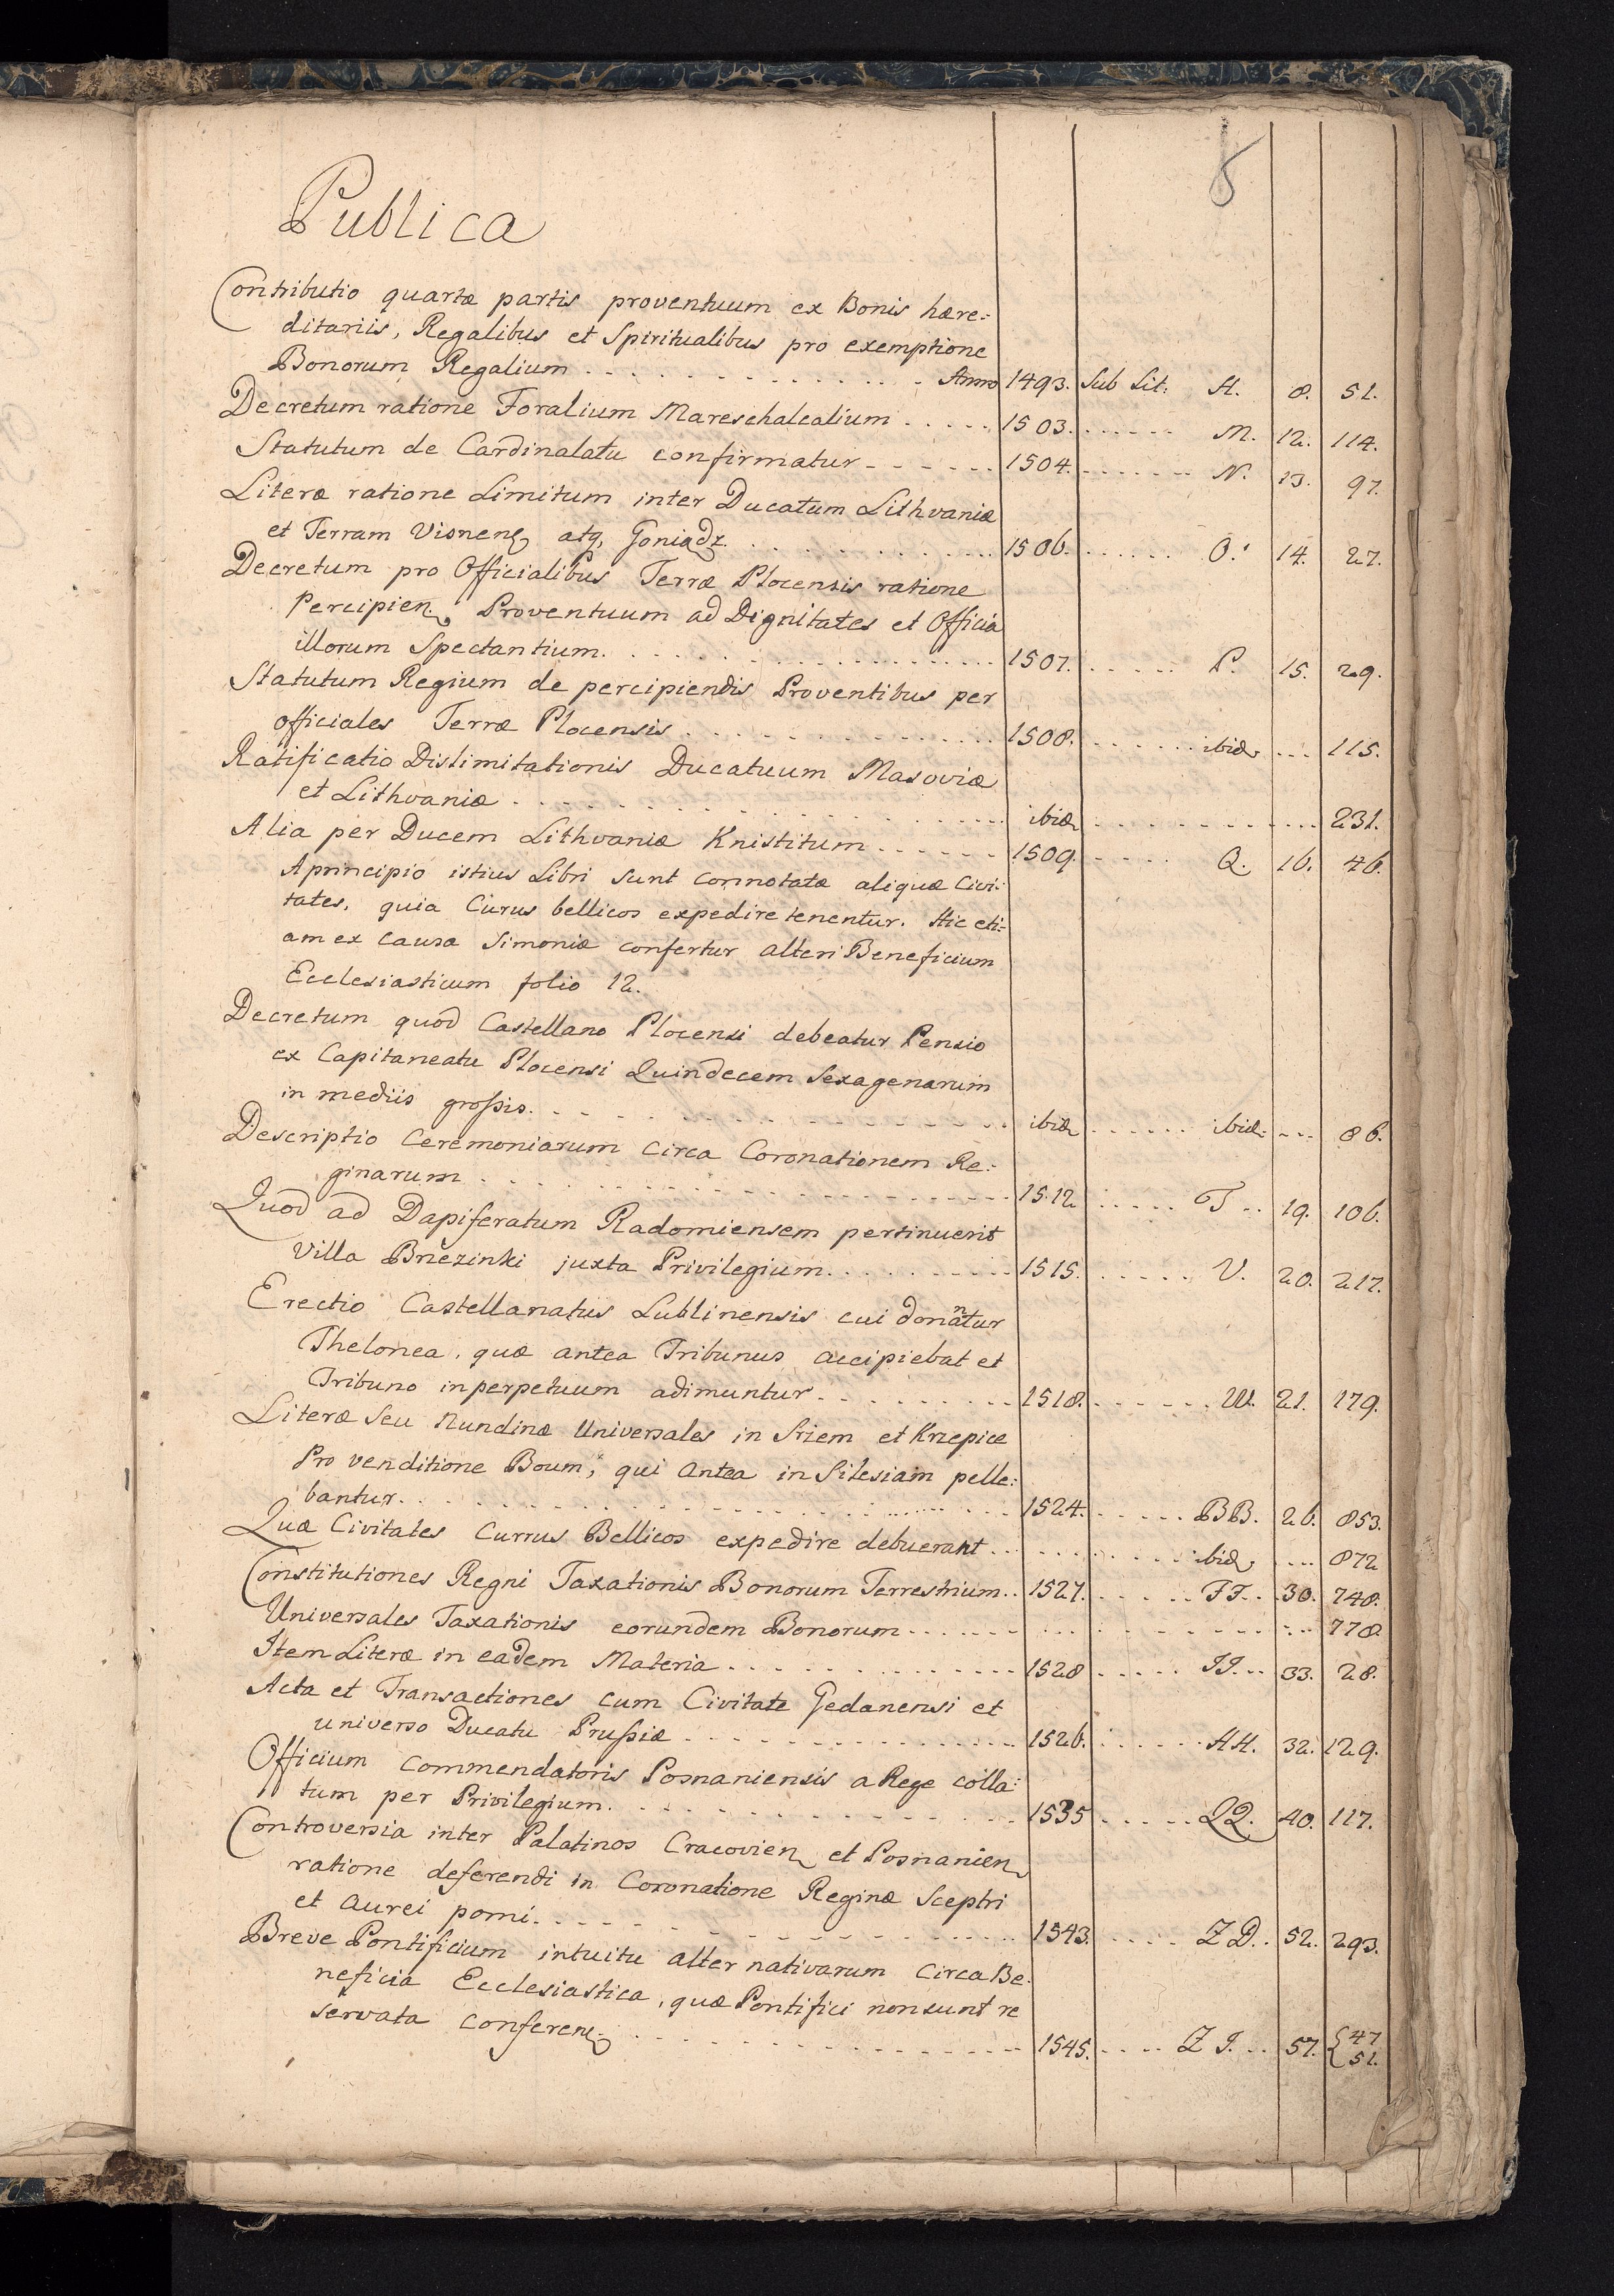 8
Publica
Contributio quartæ partis proventuum ex Bonis hære:
ditariis, Regalibus et Spiritualibus pro exemptione
Bonorum Regalium . . . . . Anno 1493. Sub Lit: H. 8. 51.
Decretum ratione Foralium Mareschalcalium . . . . . 1503. . . . . . M. 12. 114.
Statutum de Cardinalatu confirmatur . . . . . 1504. . . . . . N. 13. 97.
Literæ ratione Limitum inter Ducatum Lithvaniæ
et Terram Visnen atq, Goniądz. . . . . . 1506. . . . . . O. 14. 27.
Decretum pro Officialibus Terræ Plocensis ratione
Percipien. Proventuum ad Dignitates et Officia
illorum Spectantium. . . . . . 1507. . . . . . P. 15. 29.
Statutum Regium de percipiendis Proventibus per
officiales Terræ Plocensis . . . . . 1508. . . . . . ibid. . . . 115.
Ratificatio Dislimitationis Ducatuum Masoviæ
et Lithvaniæ . . . . . ibid . . . . . 231.
Alia per Ducem Lithvaniæ Knistitum . . . . . 1509. . . . . . Q. 16. 46.
Aprincipio istius Libri sunt connotatæ aliquæ Civi:
tates, quia Curus bellicos expedire tenentur. Hic eti:
am ex causa Simoniæ confertur alteri Beneficium
Ecclesiasticum folio 12.
Decretum quod Castellano Plocensi debeatur Pensio
ex Capitaneatu Plocensi Quindecem Sexagenarum
in mediis grossis. . . . . . ibid . . . . . ibid: . . . 86.
Descriptio Ceremoniarum circa Coronationem Re:
ginarum . . . . . 1512 . . . . . T . . 19. 106.
Quod ad Dapiferatum Radomiensem pertinuerit
Villa Brzezinki juxta Privilegium. . . . . . 1515. . . . . . V. 20. 217.
Erectio Castellanatus Lublinensis cui donantur
Thelonea, quæ antea Tribunus accipiebat et
Tribuno inperpetuum adimuntur . . . . . 1518. . . . . . W. 21. 179.
Literæ Seu Nundinæ Universales in Sriem et Krzepice
Pro venditione Boum, qui antea in Silesiam pelle:
bantur. . . . . . 1524. . . . . . BB. 26. 853.
Quæ Civitates Currus Bellicos expedire debuerant . . . . . ibid, . . . . 872
Constitutiones Regni Taxationis Bonorum Terrestrium . . 1527. . . . . . FF. . . 30. 748.
Universales Taxationis eorundem Bonorum . . . . . 778
Item Literæ in eadem Materia . . . . . 1528 . . . . . II. . . 33. 28.
Acta et Transactiones cum Civitate Gedanensi et
universo Ducatu Prussiæ . . . . . 1526. . . . . . HH. 32. 129.
Officium Commendatoris Posnaniensis a Rege colla:
tum per Privilegium. . . . . . 1535 . . . . . QQ. 40. 117.
Controversia inter Palatinos Cracovien et Posnanien
ratione deferendi in Coronatione Reginæ Sceptri
et aurei pomi. . . . . . 1543. . . . . . ZD. . 52. 293.
Breve Pontificium intuitu alternativarum circa Be:
neficia Ecclesiastica, quæ Pontifici non sunt re
servata conferen. . . . . . 1545. . . . . ZI. . . 57. { 47
51.